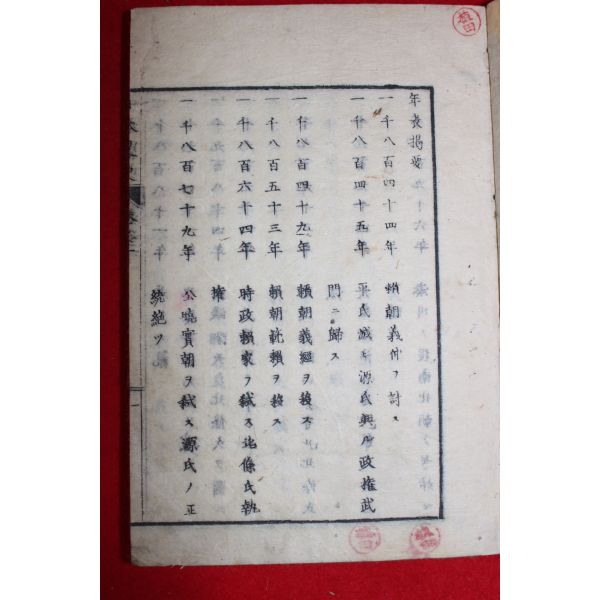 年表揭要
一千八百四十四年 賴朝義仲ヲ討ス
一千八百四十五年 平氏滅ヒ源氏興ル政權武
門ニ歸ス
一千八百四十九年 賴朝義經ヲ殺ス
一千八百五十三年 賴朝範賴ヲ殺ス
一千八百六十四年 時政賴家ヲ弑ス北條氏執
權
一千八百七十九年 公曉實朝ヲ弑ス源氏ノ正
統絶ツ
植田
植田